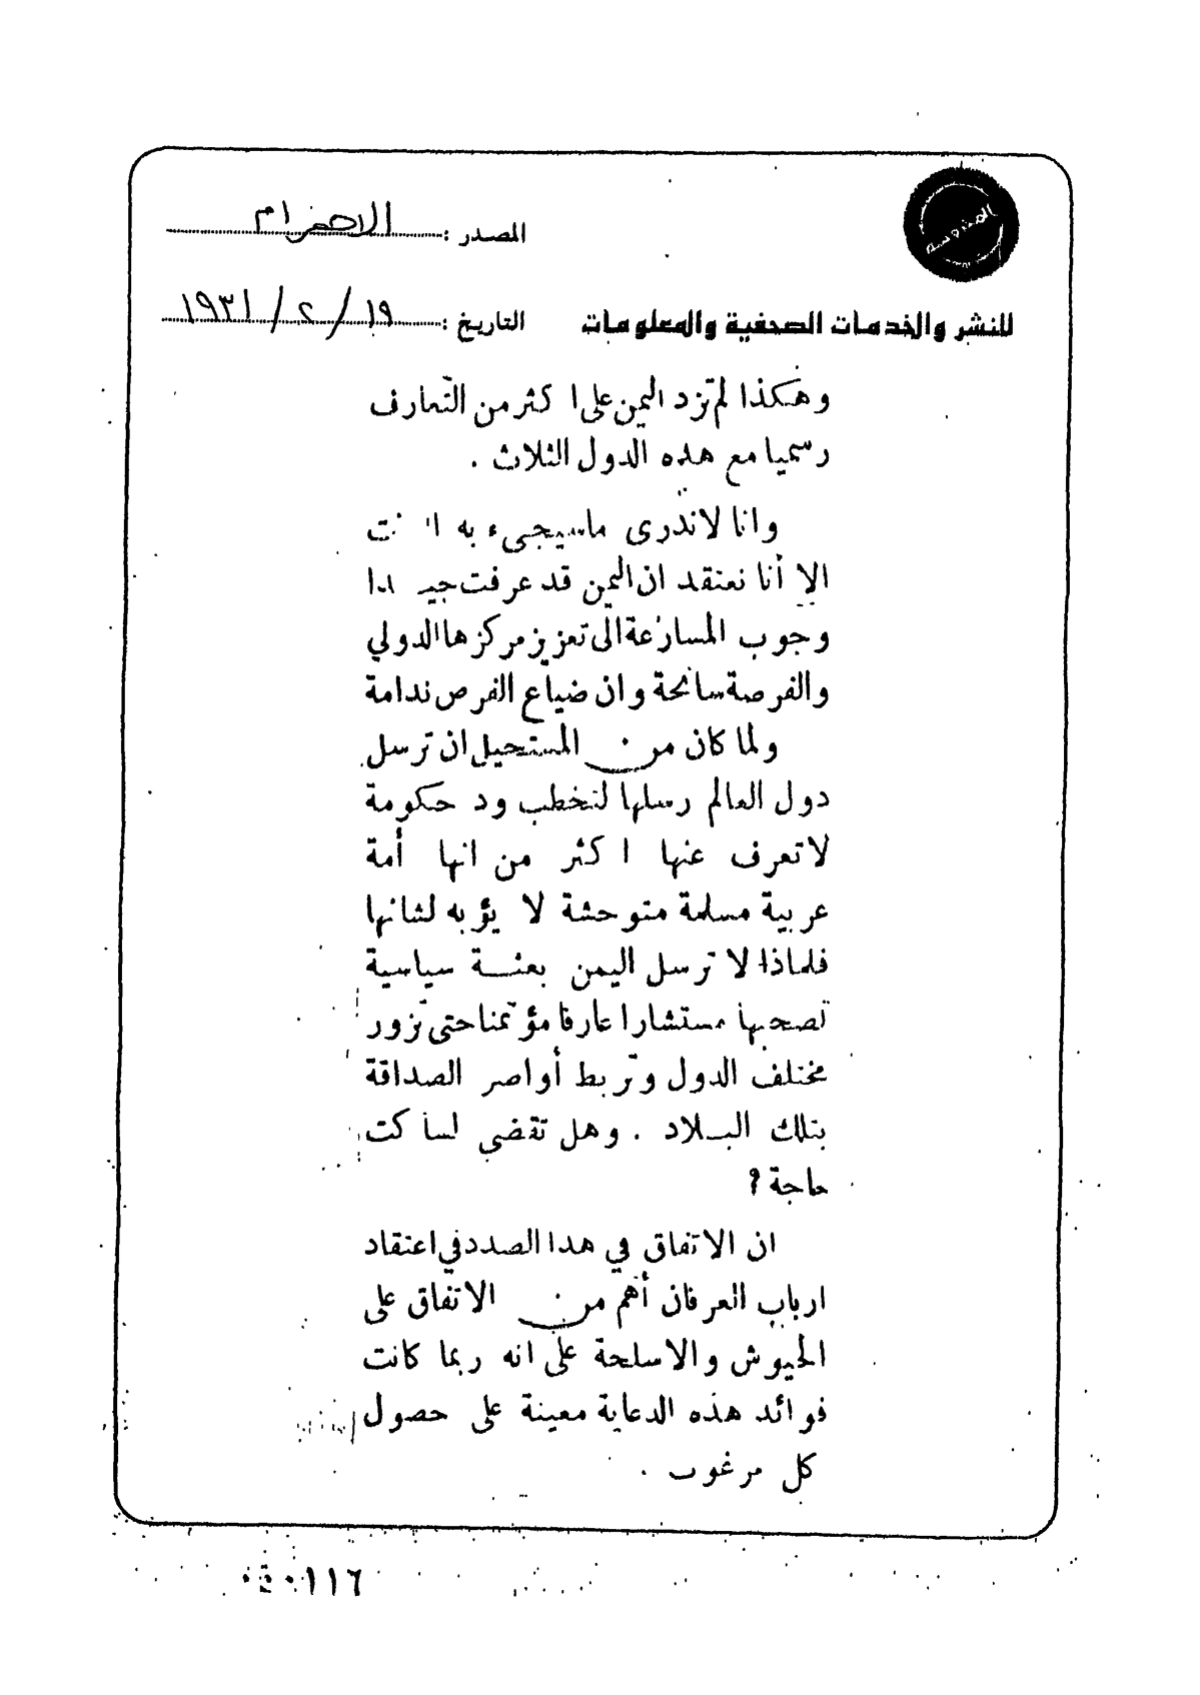 المصدر : الاهرام
للنشر والخدمات الصحفية والمعلومات
التاريخ : ١٩ / ٢ / ١٩٣١
وهكذا لم تزد اليمن على اكثر من التعارف
رسميا مع هذه الدول الثلاث .
وانا لاندرى ماسيجىء به
الا أنا نعتقد ان اليمن قد عرفت جيدا
وجوب المسارعة الى تعزيز مركزها الدولي
والفرصة سانحة وان ضياع الفرص ندامة
ولما كان من المستحيل ان ترسل
دول العالم رسلها لتخطب ود حكومة
لا تعرف عنها اكثر من انها أمة
عربية مسلمة متوحشة لا يؤبه لشانها
فلماذا لا ترسل اليمن بعثة سياسية
تصحبها مستشارا عارفا مؤتمنا حتى تزور
مختلف الدول وتربط أواصر الصداقة
بتلك البلاد . وهل تقضى لساكت
حاجة ؟
ان الاتفاق في هذا الصدد في اعتقاد
ارباب العرفان أهم من الاتفاق على
الجيوش والاسلحة على انه ربما كانت
فوائد هذه الدعاية معينة على حصول
كل مرغوب .